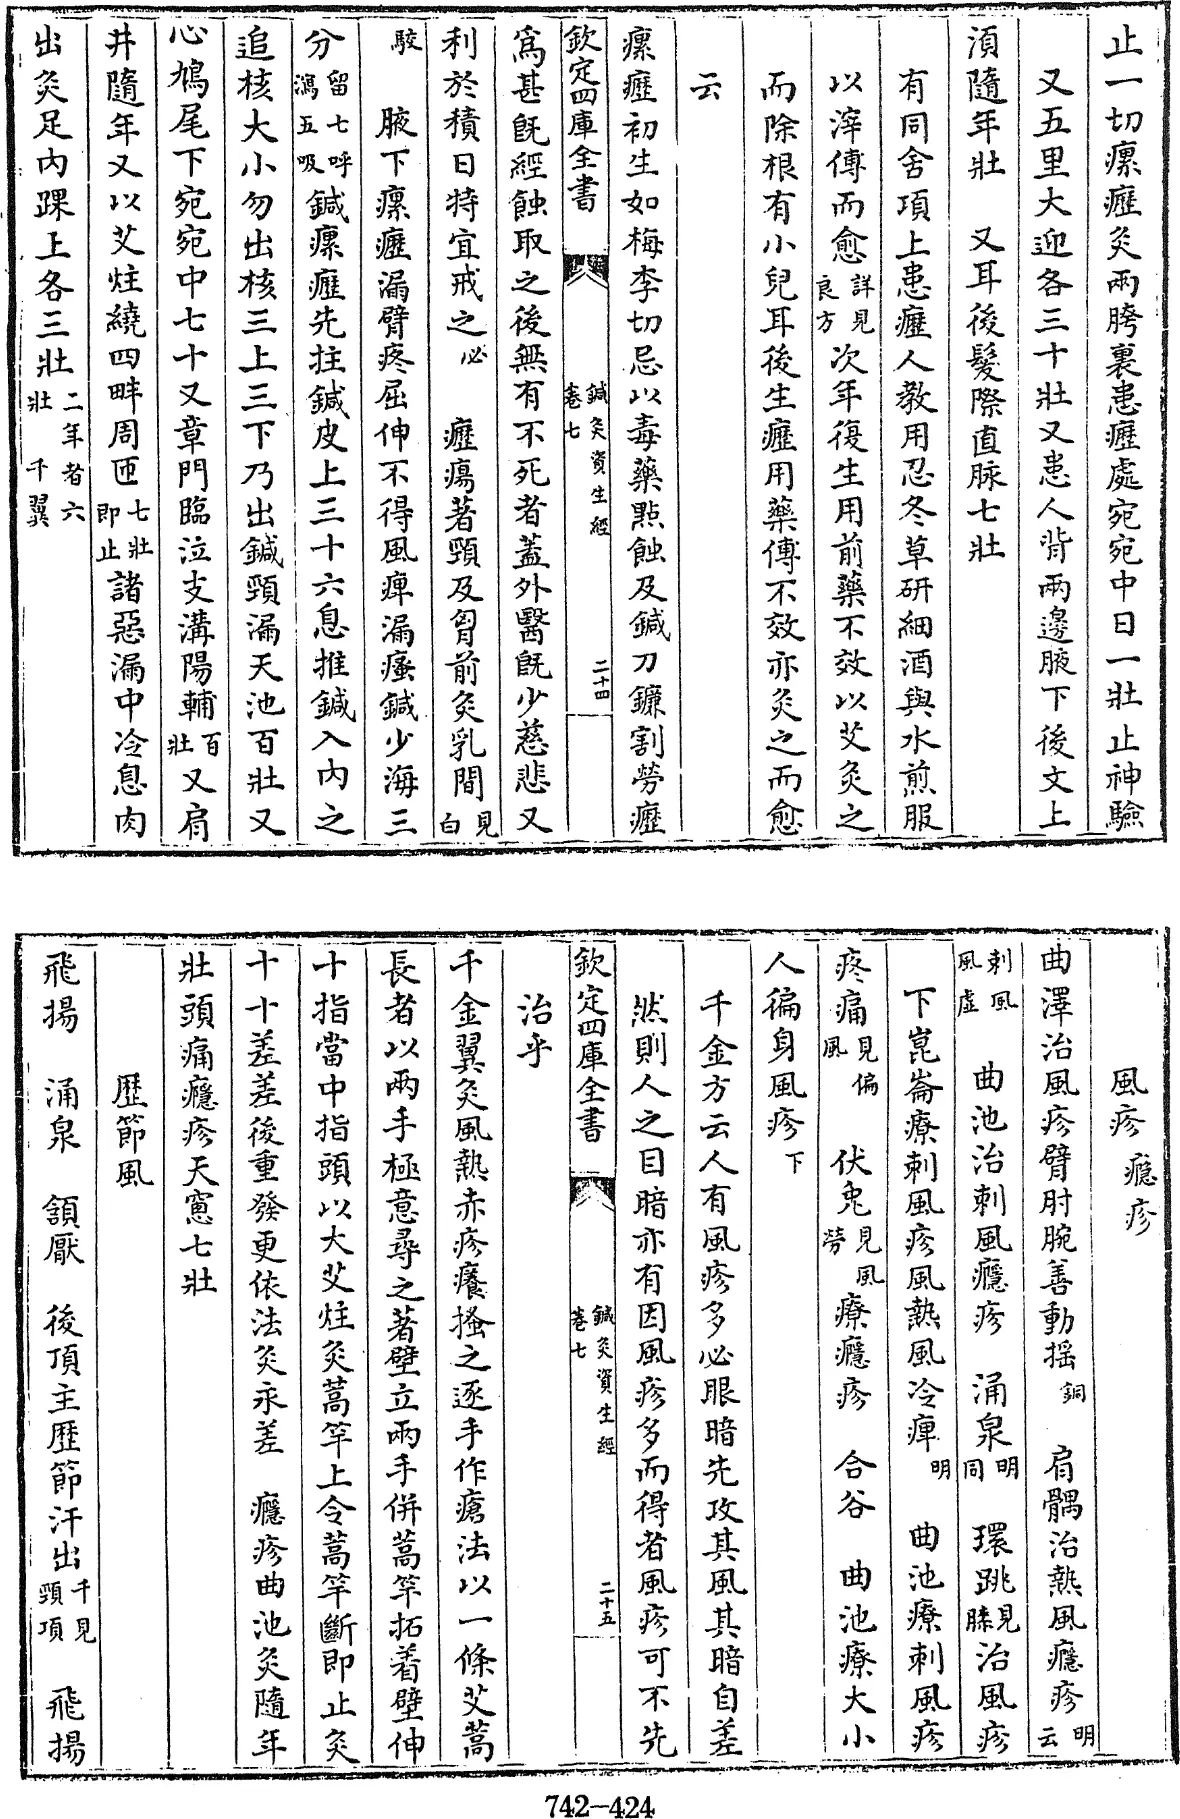 止一切瘰癧灸兩胯裏患癧處宛宛中日一壯止神驗
又五里大迎各三十壯又患人背兩邊腋下後文上
湏隨年壯　又耳後髮際直脉七壯
有同舍項上患癧人教用忍冬草研細酒與水煎服
以滓傅而愈詳見良方次年復生用前藥不效以艾灸之
而除根有小兒耳後生癧用藥傅不效亦灸之而愈
云
瘰癧初生如梅李切忌以毒藥㸃蝕及鍼刀鐮割勞癧
欽定四庫全書　鍼灸資生經卷七　二十四
為甚既經蝕取之後無有不死者葢外醫既少慈悲又
利於積日特宜戒之必　癧瘍著頸及胷前灸乳間見白
駮　腋下瘰癧漏臂疼屈伸不得風痺漏瘙鍼少海三
分留七呼瀉五吸鍼瘰癧先拄鍼皮上三十六息推鍼入内之
追核大小勿出核三上三下乃出鍼頸漏天池百壯又
心鳩尾下宛宛中七十又章門臨泣支溝陽輔百壯又肩
井隨年又以艾炷繞四畔周匝七壯即止諸惡漏中冷息肉
出灸足内踝上各三壯二年者六壯　千翼
風疹　癮疹
曲澤治風疹臂肘腕善動揺銅　肩髃治熱風癮疹明云
刺風風虚　曲池治刺風癮疹　涌泉明同　環跳見膝治風疹
下崑崙療刺風疹風熱風冷痺明　曲池療刺風疹
疼痛見偏風　伏兔見風勞療癮疹　合谷　曲池療大小
人徧身風疹下
千金方云人有風疹多必眼暗先攻其風其暗自差
然則人之目暗亦有因風疹多而得者風疹可不先
欽定四庫全書　鍼灸資生經卷七　二十五
治乎
千金翼灸風熱赤疹癢搔之逐手作瘡法以一條艾蒿
長者以兩手極意尋之著壁立兩手併蒿竿拓着壁伸
十指當中指頭以大艾炷灸蒿竿上令蒿竿斷即止灸
十十差差後重發更依法灸永差　癮疹曲池灸隨年
壯頭痛癮疹天窻七壯
歴節風
飛揚　涌泉　頷厭　後頂主歴節汗出千見頸項　飛揚
742-424